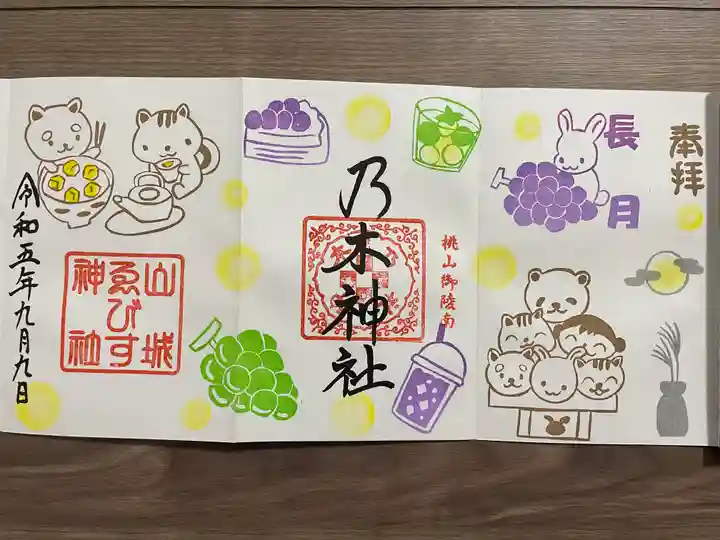 奉拝
長月
桃山御陵南
乃木神社
山城
ゑびす
神社
令和五年九月九日